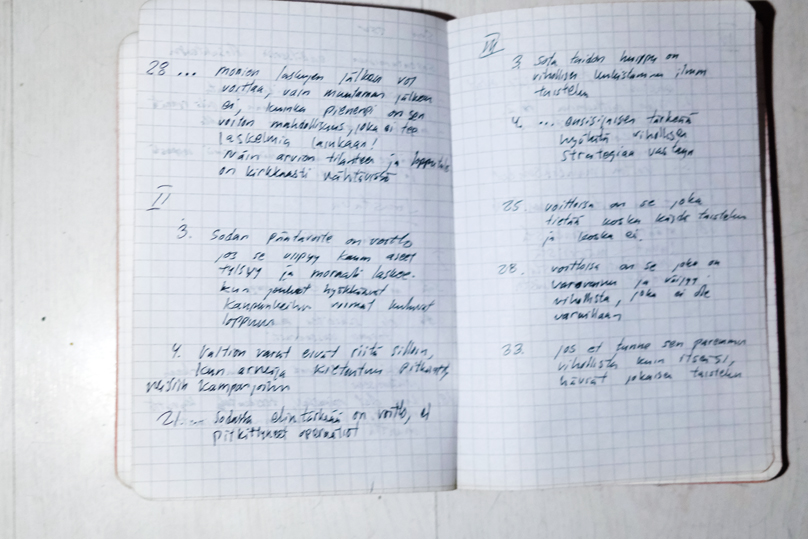 28 ... monien laskujen jälkeen voi
voittaa, vain muutaman jälkeen
ei, kuinka pienempi on sen
voiton mahdollisuus, joka ei tee
laskelmia lainkaan!
Näin arvion tilanteen ja lopputulos
on kirkkaasti nähtävissä
II
3. Sodan päätavoite on voitto
jos se viipyy kauan aseet
tylsyy ja moraali laskee.
kun joukot hyökkäävät
kaupunkeihin voimat kuluvat
loppuun
4. Valtion varat eivät riitä silloin,
kun armeija
pitkällisiin kampanjoihin
21. ... Sodassa elintärkeää on voitto, ei
pitkittyneet operaatiot
III
3. Sota taidon huippu on
vihollisen kukistaminen ilman
taistelua
4. ... ensisijaisen tärkeää
hyökätä vihollisen
strategiaa vastaan
25. voittoisa on se joka
tietää koska käydä taisteluun
ja koska ei.
28. voittoisa on se joka on
varovainen ja väijyy
vihollista, joka ei ole
varuillaan
33. Jos et tunne sen paremmin
vihollista kuin itseäsi,
häviät jokaisen taistelun